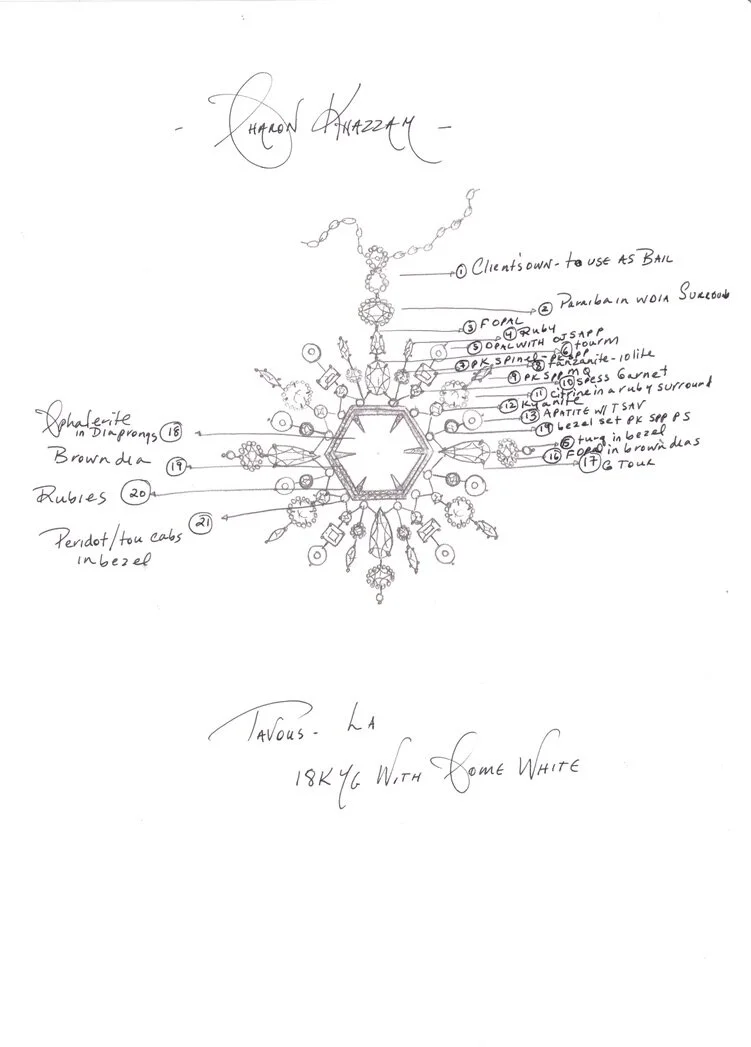 - Sharon Khazzam -
① Client's own - to USE AS BAIL
② Paraiba in W DIA Surround
③ F OPAL
④ Ruby
⑤ OPAL WITH OJ SAPP
⑥ tourm
⑦ PK. SPINEL - PK SPP
⑧ tanzanite - iolite
⑨ PK SPP MQ
⑩ Spess Garnet
⑪ Citrine in a ruby surround
⑫ Kyanite
⑬ APATITE W/ TSAV
⑭ bezel set PK SPP PS
in bezel
⑯ F OPAL in brown dias
⑰ G TOUR
Sphalerite
in Diaprongs ⑱
Brown dia ⑲
Rubies ⑳
Peridot/tou cabs ㉑
in bezel
TAVOUS - LA
18K Y/G WITH SOME WHITE